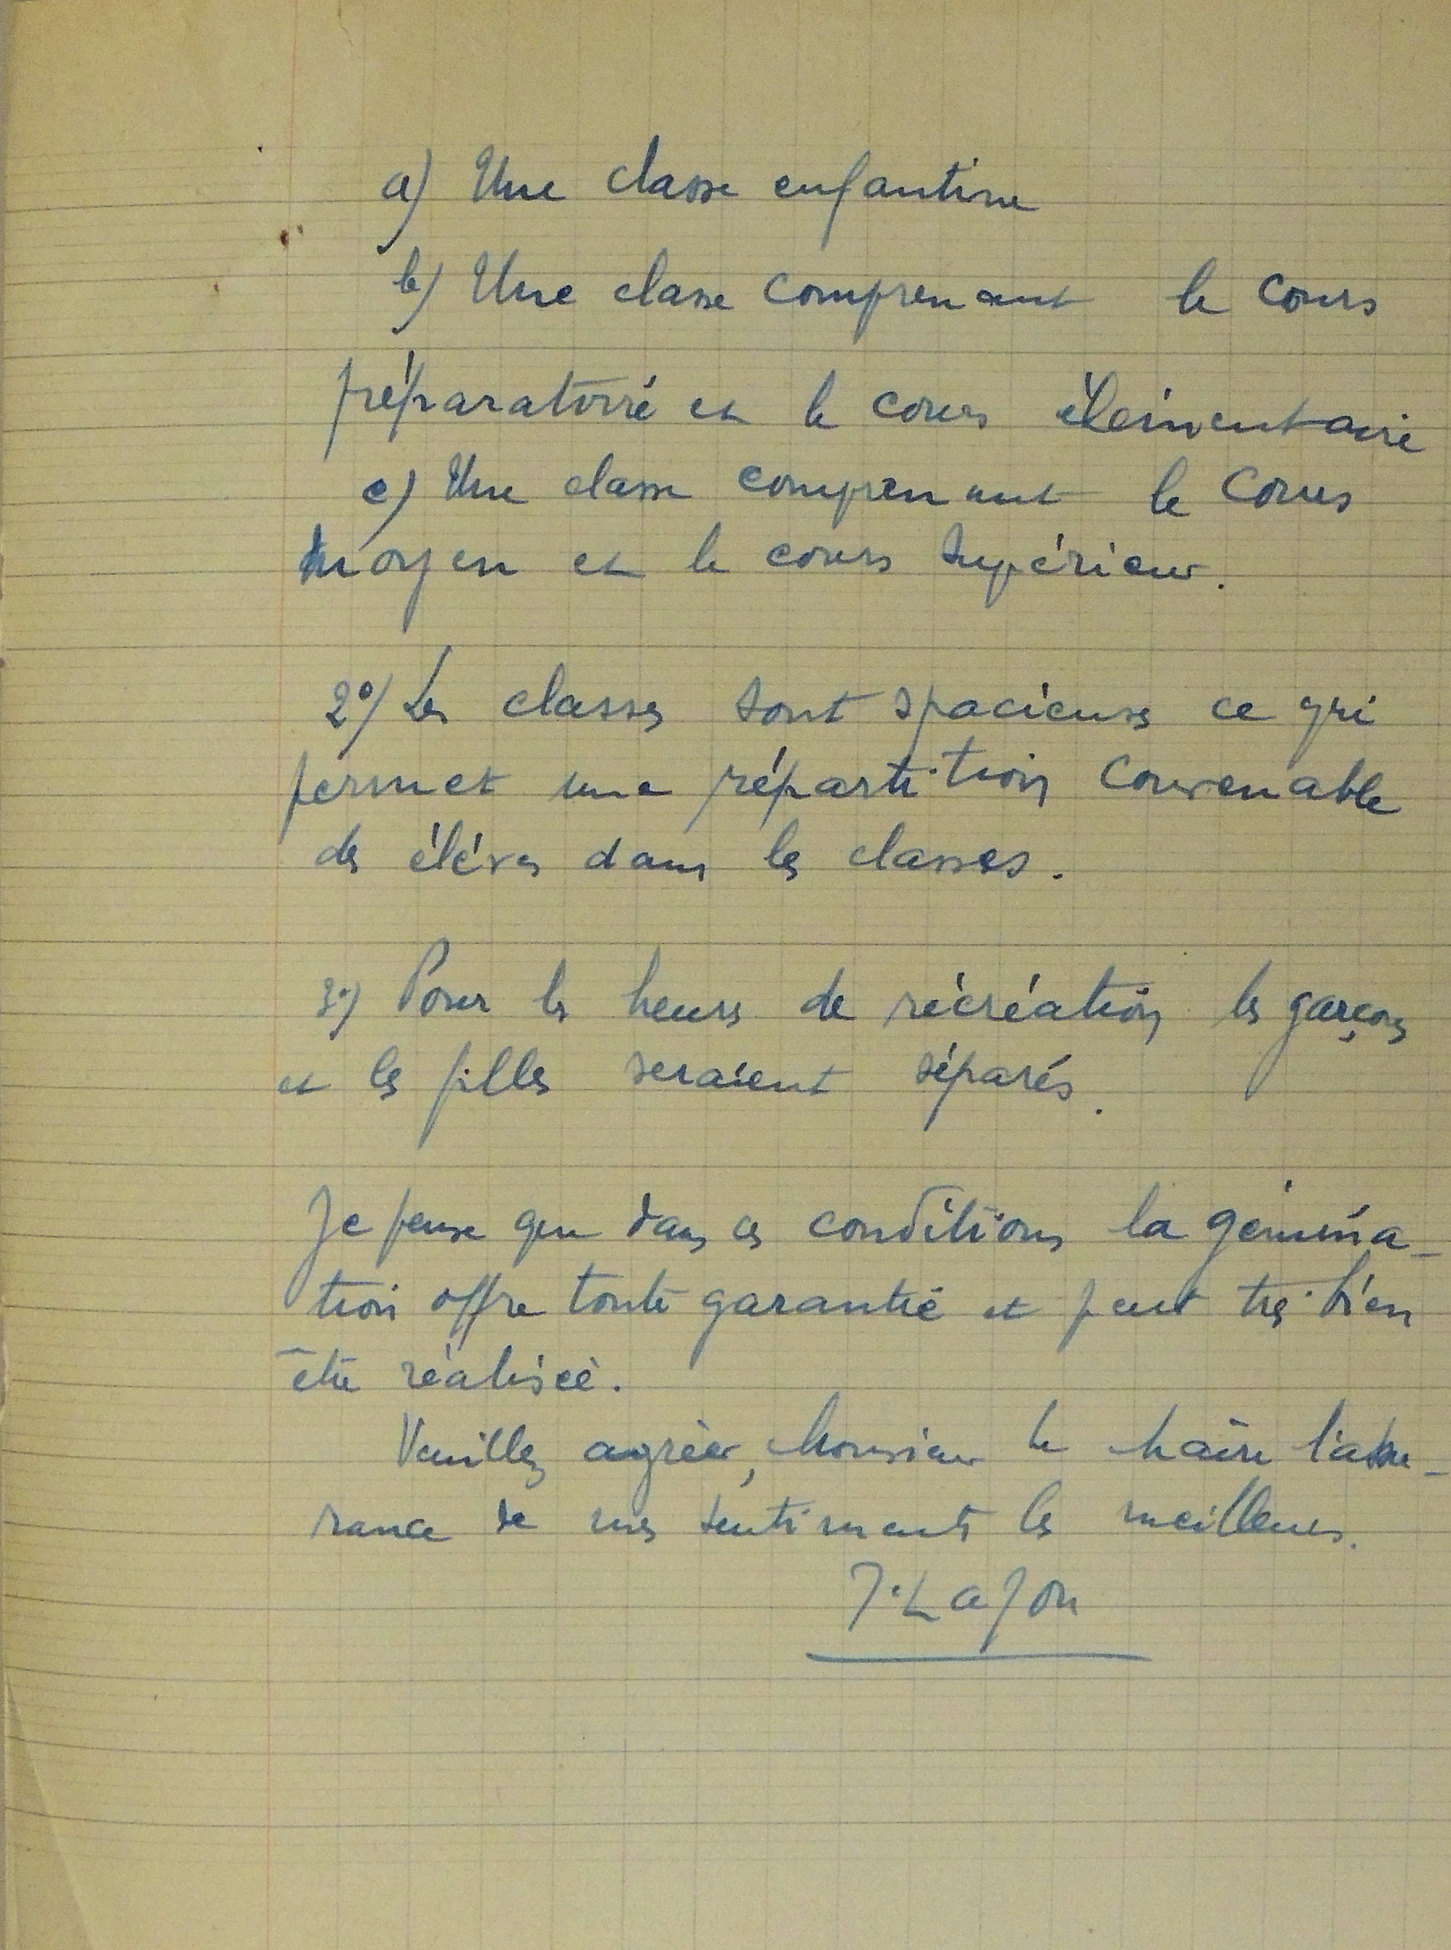 a) Une classe enfantine
b) Une classe comprenant le cours
préparatoire et le cours élémentaire
c) Une classe comprenant le Cours
moyen et le cours supérieur.
2°/ Les classes sont spacieuses ce qui
permet une répartition convenable
des élèves dans les classes.
3°) Pour les heures de récréation les garçons
et les filles seraient séparés.
Je pense que dans ces conditions la gémina-
tion offre toute garantie et peut très bien
être réalisée.
Veuillez agréer, Monsieur le Maire l'assu-
rance de mes sentiments les meilleurs.
J. Lafon